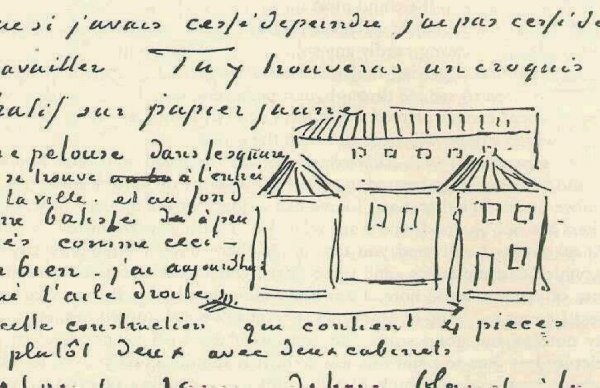 que si j'avais cessé de peindre j'ai pas cessé de
travailler Tu y trouveras un croquis
hâtif sur papier jaune
une pelouse dans le square
se trouve à l'entrée
la ville. et au fond
une batisse à peu
près comme ceci —
bien. j'ai aujourd'hui
l'aile droite
cette construction qui contient 4 pieces
plutôt deux avec deux cabinets